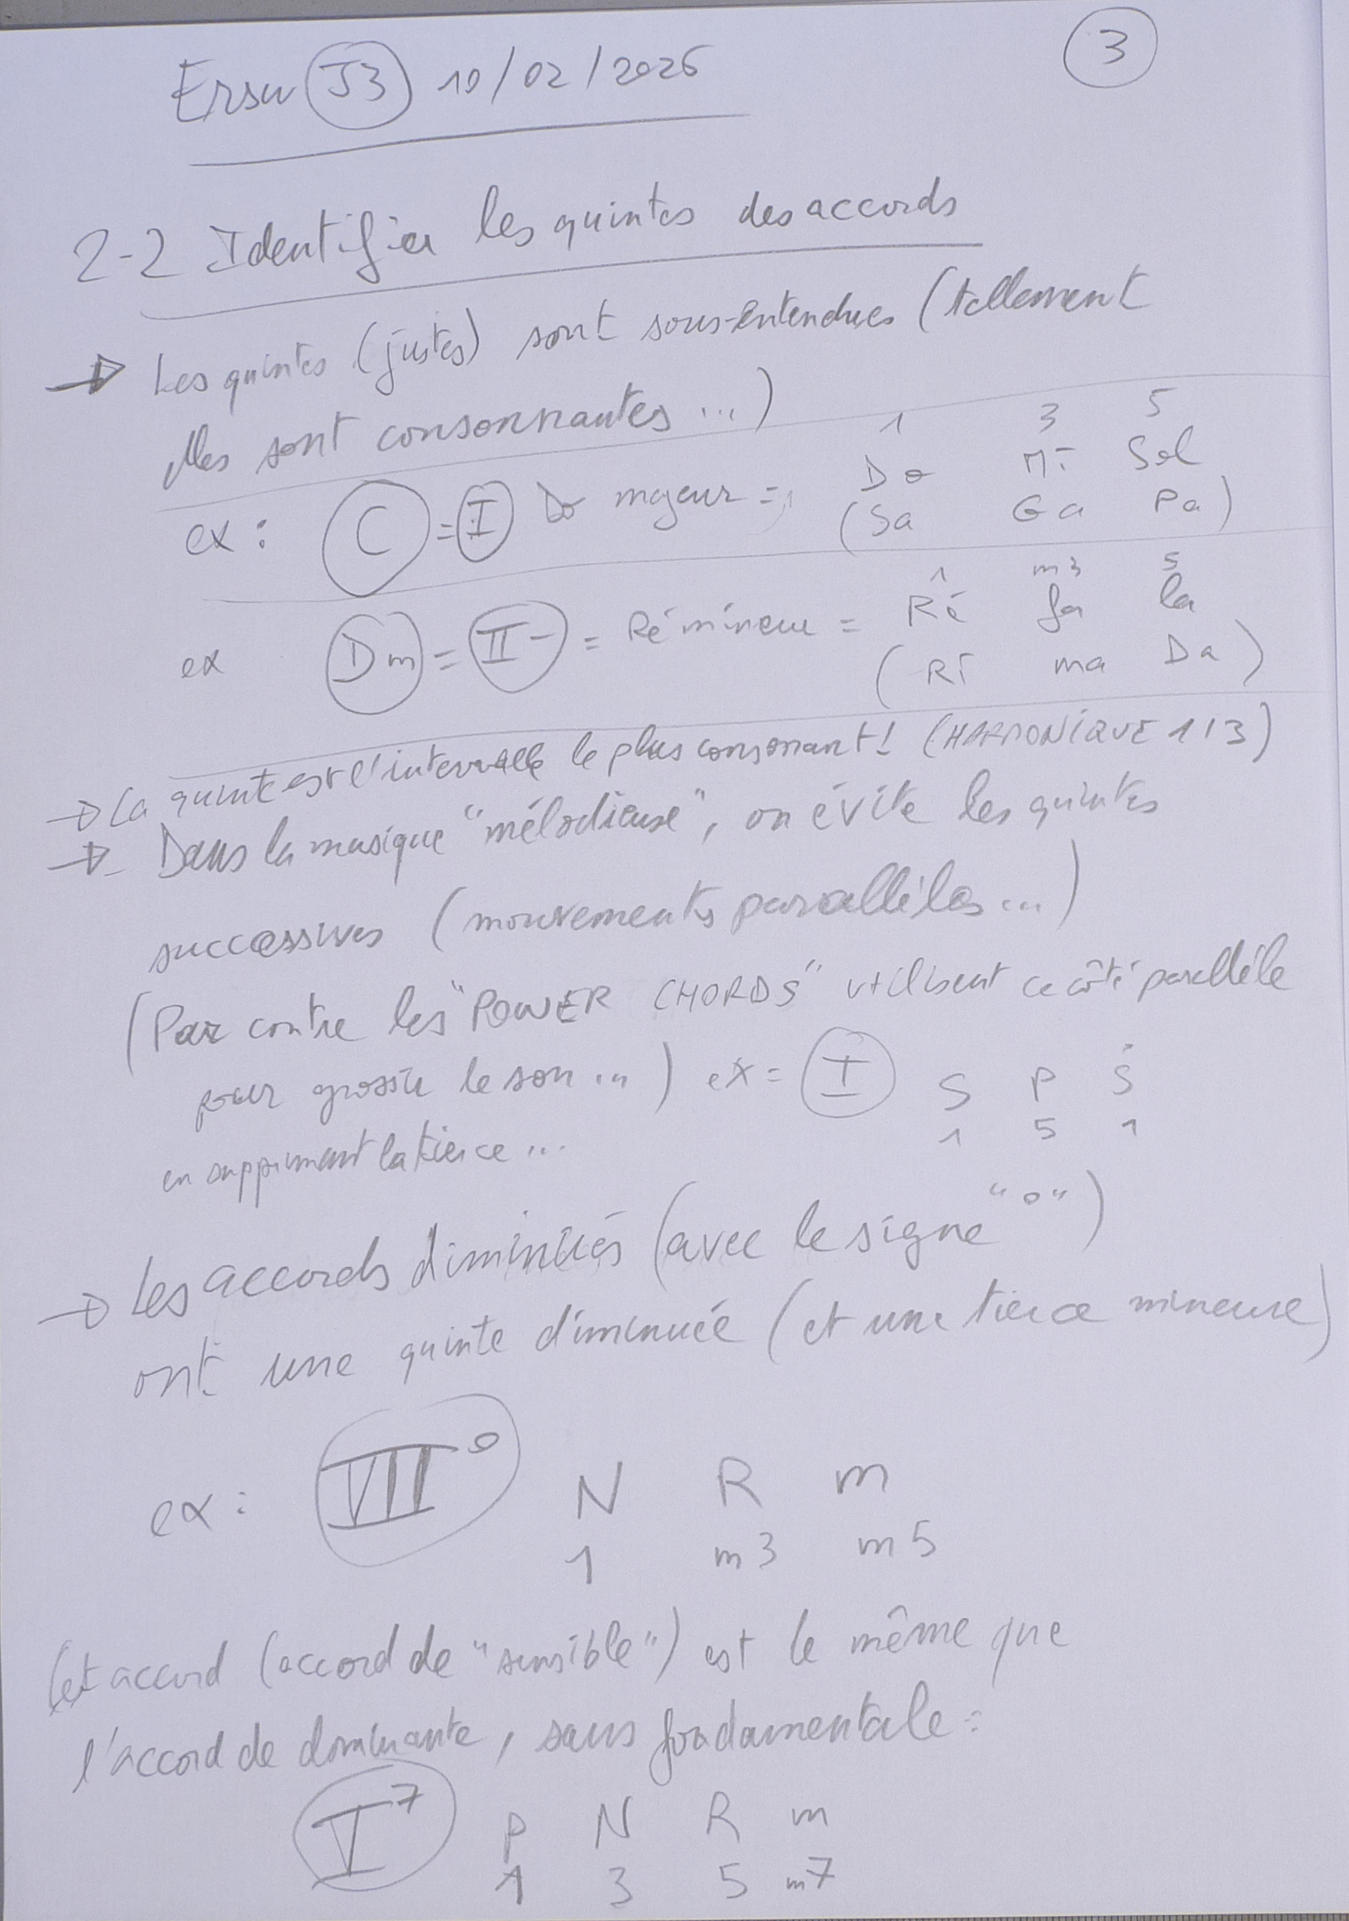 Ersu J3 10/02/2026
3
2-2 Identifier les quintes des accords
→ Les quintes (justes) sont sous-entendues (tellement
elles sont consonnantes ...)
1 3 5
ex : C = I Do majeur = Do Mi Sol
(Sa Ga Pa)
1 m3 5
ex Dm = II- = Ré mineur = Ré fa la
(Ri ma Da)
→ La quinte est l'intervalle le plus consonant! (HARMONIQUE 1/3)
→ Dans la musique "mélodieuse", on évite les quintes
successives (mouvements parallèles ...)
(Par contre les "POWER CHORDS" utilisent ce côté parallèle
pour grossir le son ...) ex = I S P Ṡ
en supprimant la tierce ... 1 5 1
→ Les accords diminués (avec le signe "o")
ont une quinte diminuée (et une tierce mineure)
ex : VII° N R m
1 m3 m5
Cet accord (accord de "sensible") est le même que
l'accord de dominante, sans fondamentale =
V7 P N R m
1 3 5 m7